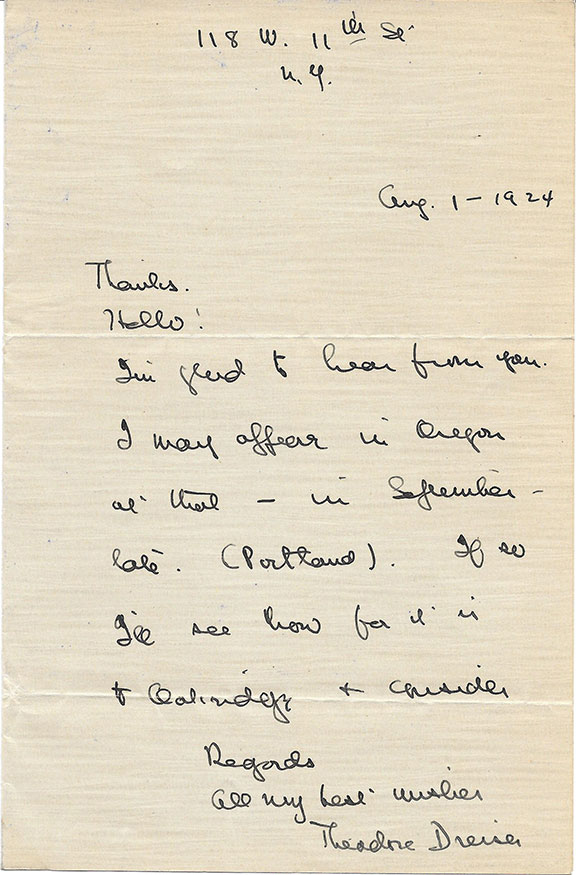 118 W. 11th St
N.Y.
Aug. 1 - 1924
Thanks.
Hello!
I'm glad to hear from you.
I may appear in Oregon
at that - in September -
late. (Portland). If so
I'll see how far it is
to Oakridge + consider
Regards
All my best wishes
Theodore Dreiser